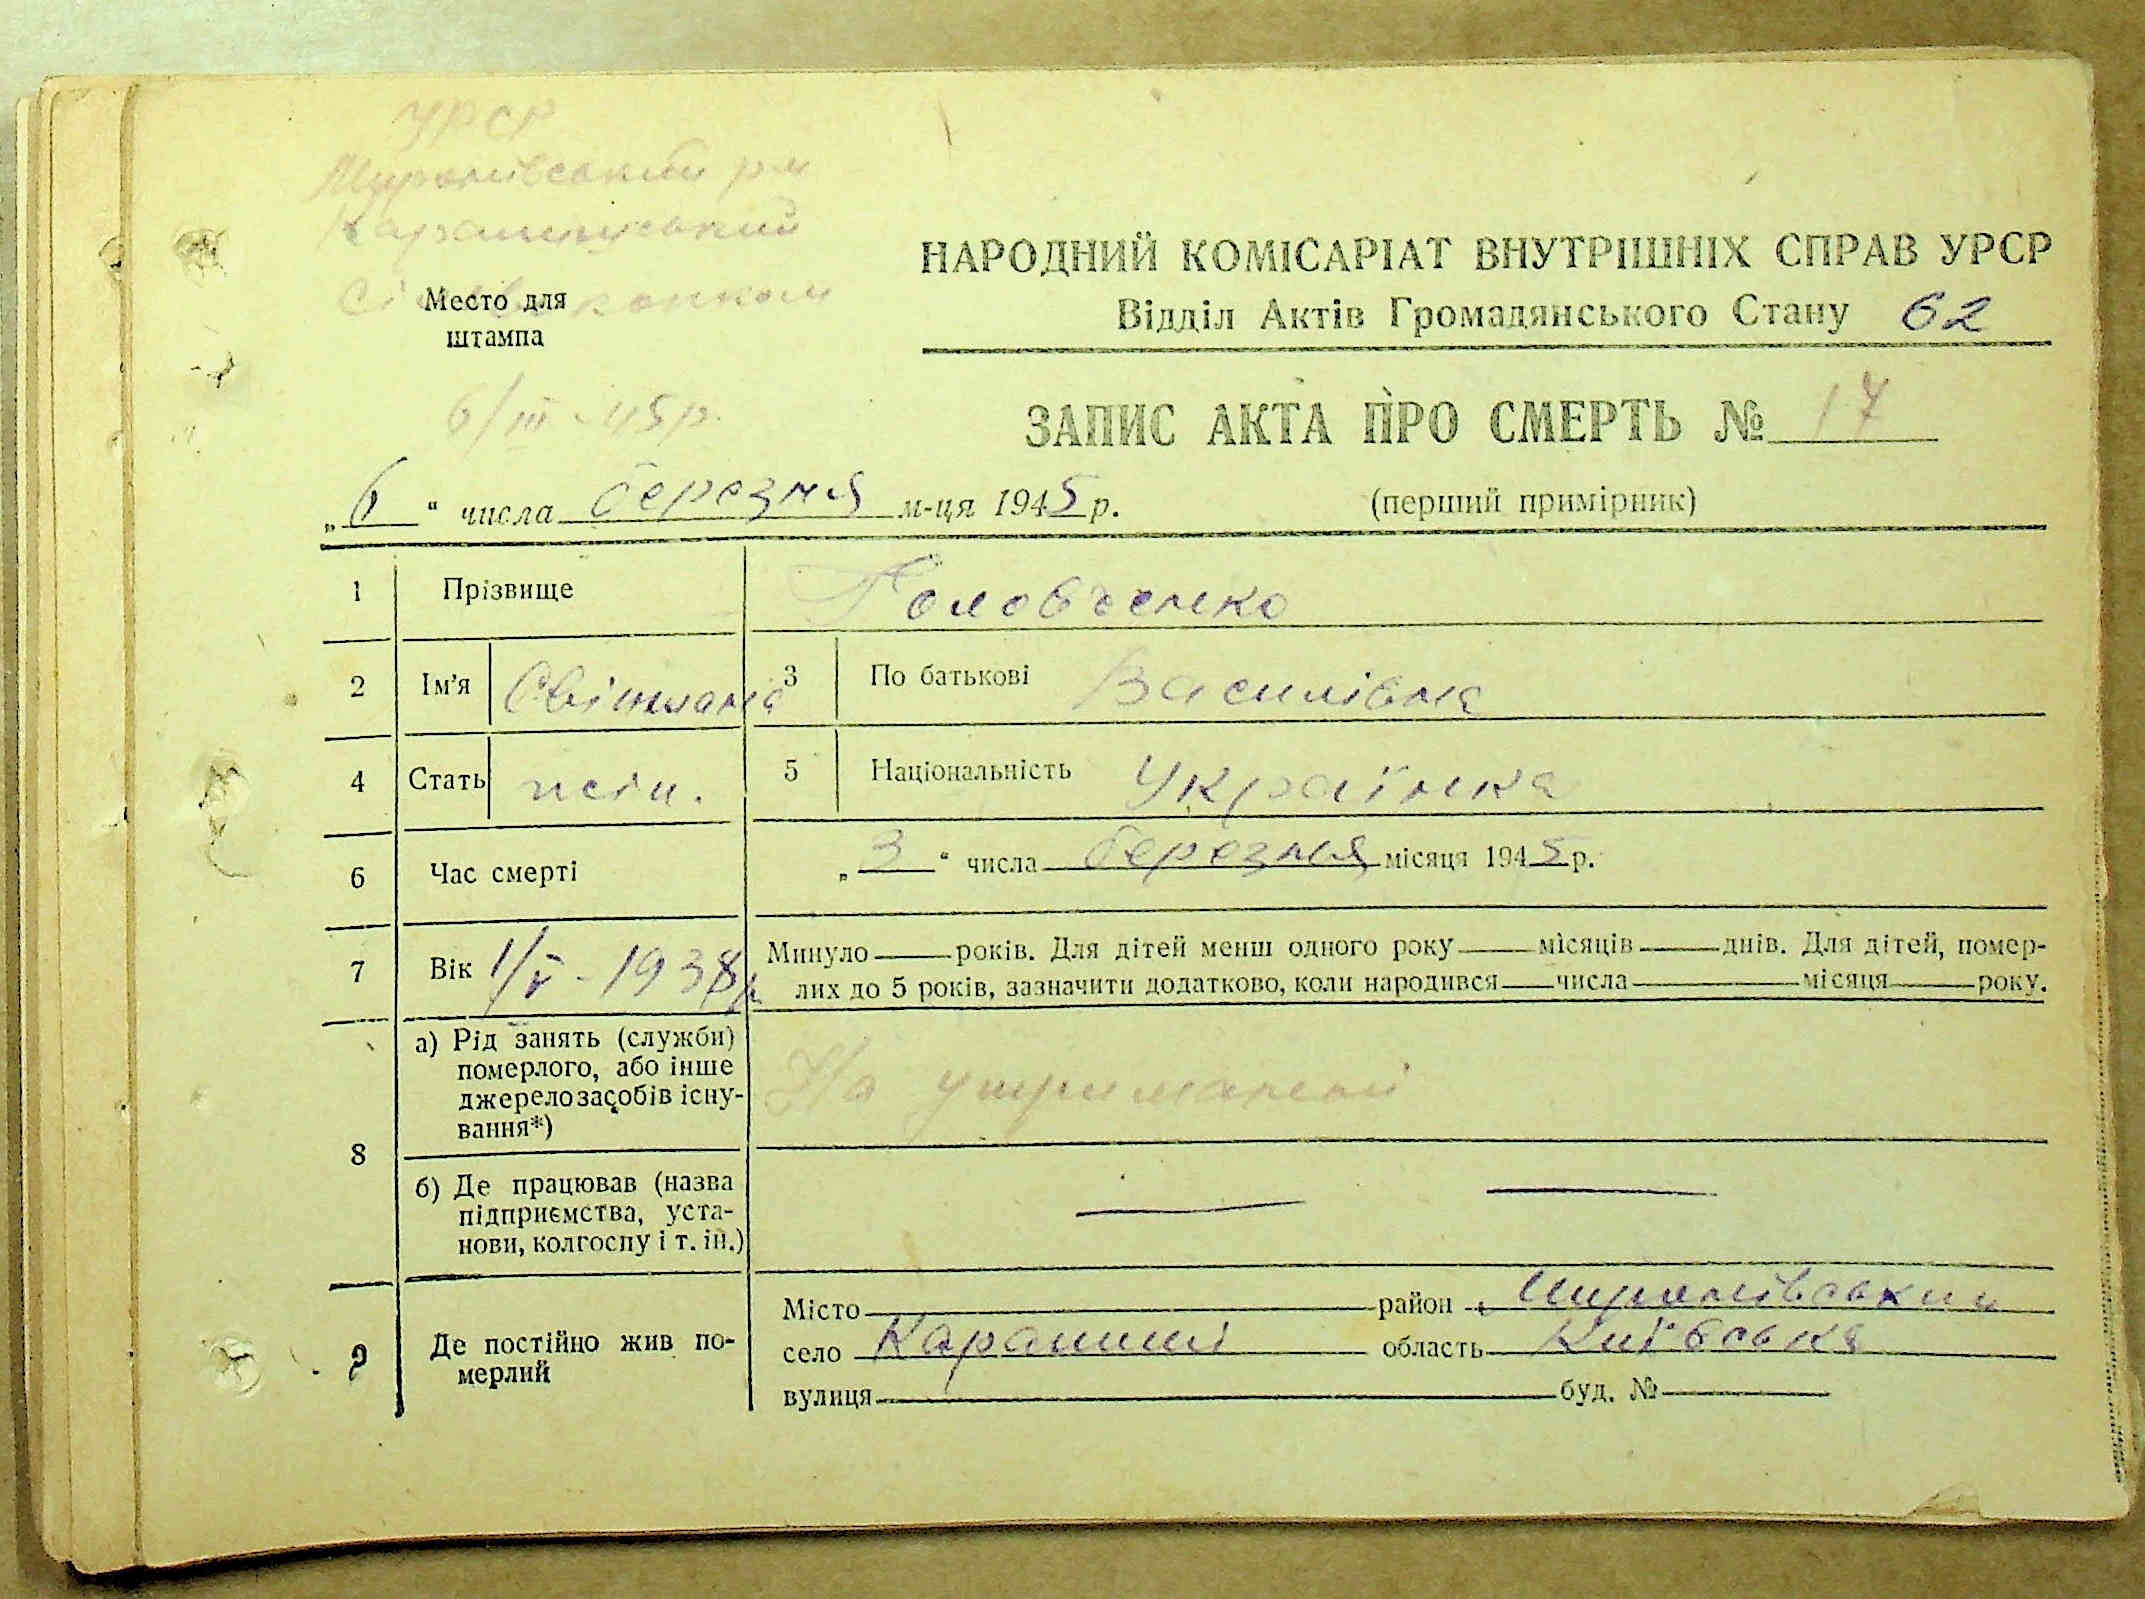 УРСР
Миронівський р-н
Карапишський
Сільвиконком
Место для
штампа
6/III-45р.
НАРОДНИЙ КОМІСАРІАТ ВНУТРІШНІХ СПРАВ УРСР
Відділ Актів Громадянського Стану 62
ЗАПИС АКТА ПРО СМЕРТЬ № 17
„6“ числа березня м-ця 1945 р.
(перший примірник)
1 Прізвище Головченко
2 Ім'я Світлана 3 По батькові Василівна
4 Стать жін. 5 Національність Українка
6 Час смерті „3“ числа березня місяця 1945 р.
7 Вік 1/V-1938р. Минуло років. Для дітей менш одного року місяців днів. Для дітей, помер-
лих до 5 років, зазначити додатково, коли народився числа місяця року.
8 а) Рід занять (служби)
померлого, або інше
джерело засобів існу-
вання*)
На утриманні
б) Де працював (назва
підприємства, уста-
нови, колгоспу і т. ін.)
9 Де постійно жив по-
мерлий
Місто район Миронівський
село Карапиші область Київська
вулиця буд. №